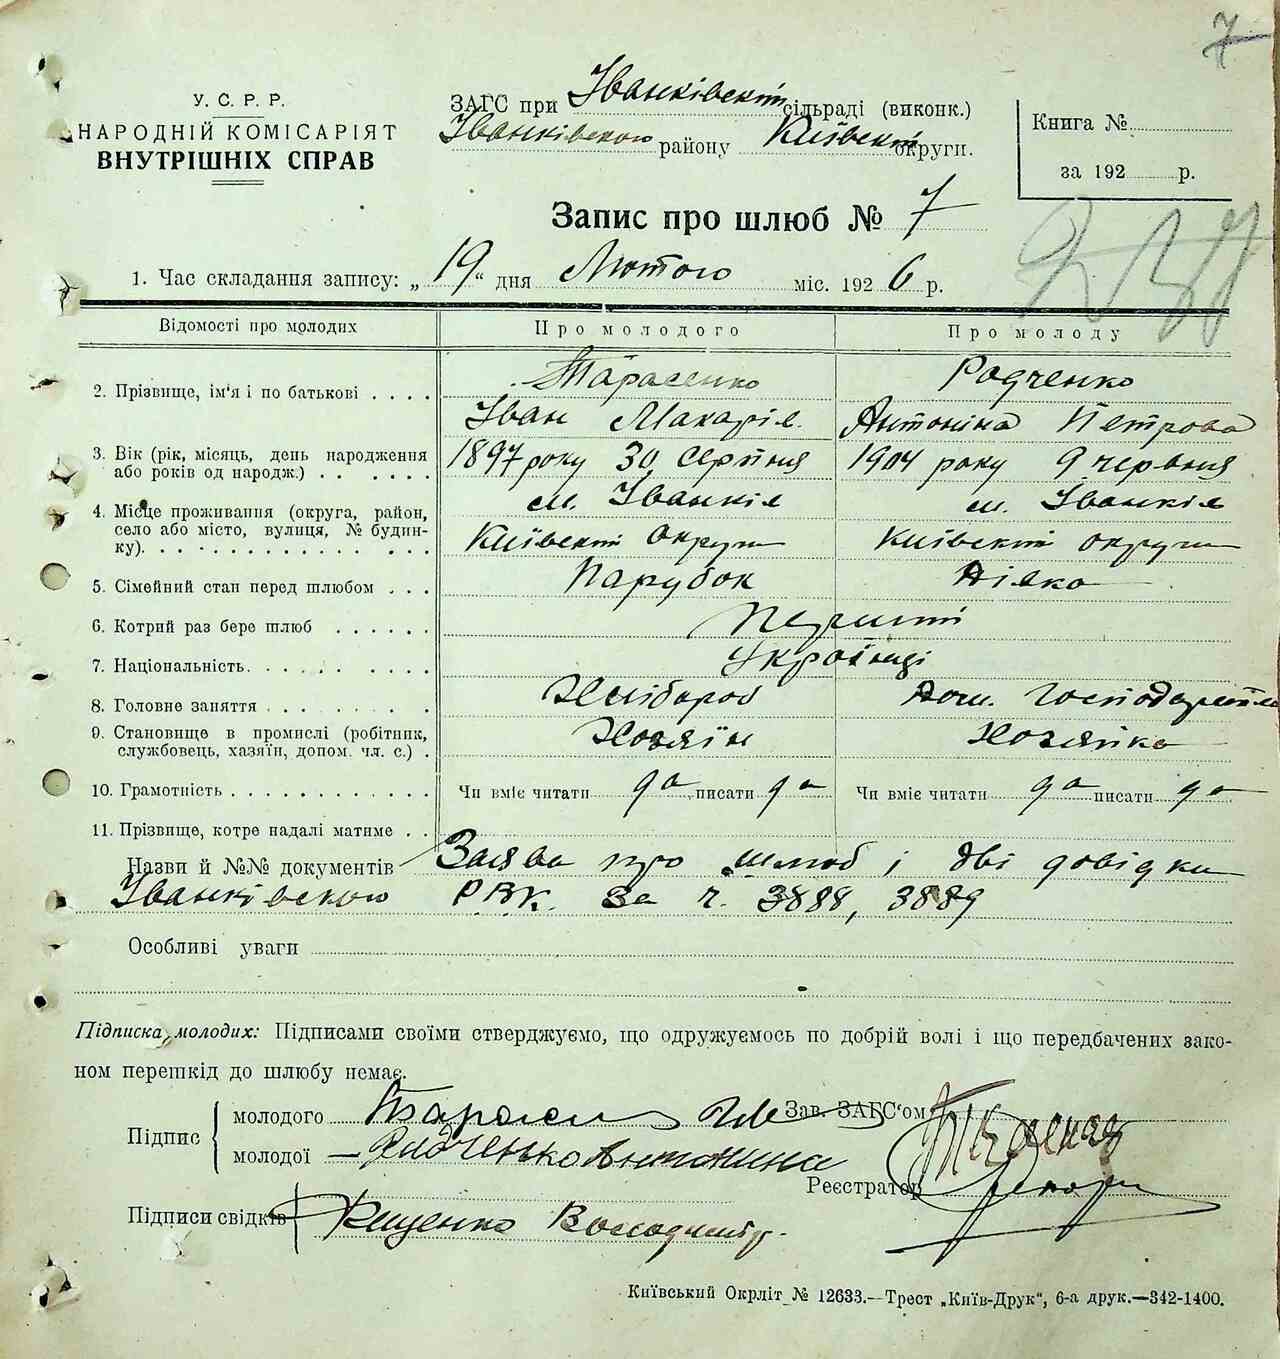 7
У. С. Р. Р.
НАРОДНІЙ КОМІСАРІЯТ
ВНУТРІШНІХ СПРАВ
ЗАГС при Іванківській сільраді (виконк.)
Іванківского району Київськ округи.
Книга №
за 192 р.
Запис про шлюб № 7
1. Час складання запису: „19“ дня Лютого міс. 1926 р.
Відомості про молодих Про молодого Про молоду
2. Прізвище, ім'я і по батькові . . . . Тарасенко Іван Макарів. Радченко Антоніна Петрова
3. Вік (рік, місяць, день народження або років од народж.) . . . . . . 1897 року 30 Серпня 1904 року 9 червня
4. Місце проживання (округа, район, село або місто, вулиця, № будинку). м. Іванків Київськ округи м. Іванків Київськ округи
5. Сімейний стан перед шлюбом . . . Парубок Дівка
6. Котрий раз бере шлюб . . . . . .
7. Національність. Українці
8. Головне заняття Хлібороб Дом. господарство
9. Становище в промислі (робітник, службовець, хазяїн, допом. чл. с.) . Хозяїн Хозяйка
10. Грамотність Чи вміє читати да писати да Чи вміє читати да писати да
11. Прізвище, котре надалі матиме . .
Назви й №№ документів Заява про шлюб і дві довідки
Іванківского РВК. за ч. 3888, 3889
Особливі уваги
Підписка молодих: Підписами своїми стверджуємо, що одружуємось по добрій волі і що передбачених зако-
ном перешкід до шлюбу немає.
Підпис
молодого Зав. ЗАГС'ом
молодої Радченько Антонина
Реєстратор
Підписи свідків Володимір.
Київський Окрліт № 12633.—Трест „Київ-Друк“, 6-а друк.—342-1400.